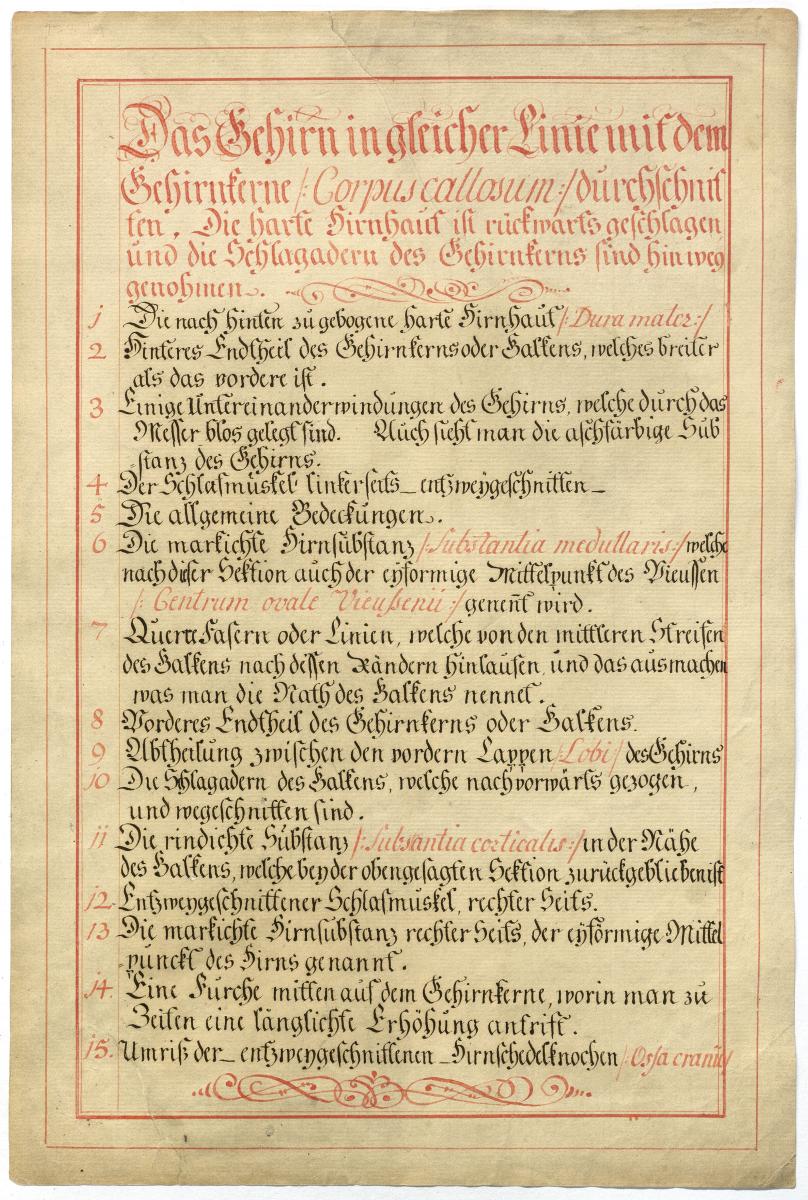 Das Gehirn in gleicher Linie mit dem
Gehirnkerne /: Corpus callosum :/ durchschnit
ten. Die harte Hirnhaut ist rückwärts geschlagen
und die Schlagadern des Gehirnkerns sind hinweg
genohmen.
1 Die nach hinten zu gebogene harte Hirnhaut /: Dura mater :/
2 Hinteres Endtheil des Gehirnkerns oder Balkens, welches breiter
als das vordere ist.
3 Einige Untereinanderwindungen des Gehirns, welche durch das
Messer blos gelegt sind. Auch sieht man die aschfärbige Sub
stanz des Gehirns.
4 Der Schlafmuskel linkerseits entzweygeschnitten
5 Die allgemeine Bedeckungen.
6 Die markichte Hirnsubstanz /: Substantia medullaris :/ welche
nach dieser Sektion auch der eyformige Mittelpunkt des Vieussen
/: Centrum ovale Vieußenii :/ genent wird.
7 Quere Fasern oder Linien, welche von den mittleren Streifen
des Balkens nach dessen Rändern hinlaufen, und das ausmachen
was man die Nath des Balkens nennet.
8 Vorderes Endtheil des Gehirnkerns oder Balkens.
9 Abtheilung zwischen den vordern Lappen /Lobi/ des Gehirns
10 Die Schlagadern des Balkens, welche nach vorwärts gezogen,
und wegeschnitten sind.
11 Die rindichte Substanz /: Substantia corticalis :/ in der Nähe
des Balkens, welche bey der obengesagten Sektion zurückgeblieben ist
12. Entzweygeschnittener Schlafmuskel, rechter Seits.
13 Die markichte Hirnsubstanz rechter Seits, der eyförmige Mittel
punckt des Hirns genannt.
14. Eine Furche mitten auf dem Gehirnkerne, worin man zu
Zeiten eine länglichte Erhöhung antrift.
15. Umriß der entzweygeschnittenen Hirnschedelknochen /: Ossa cranii :/